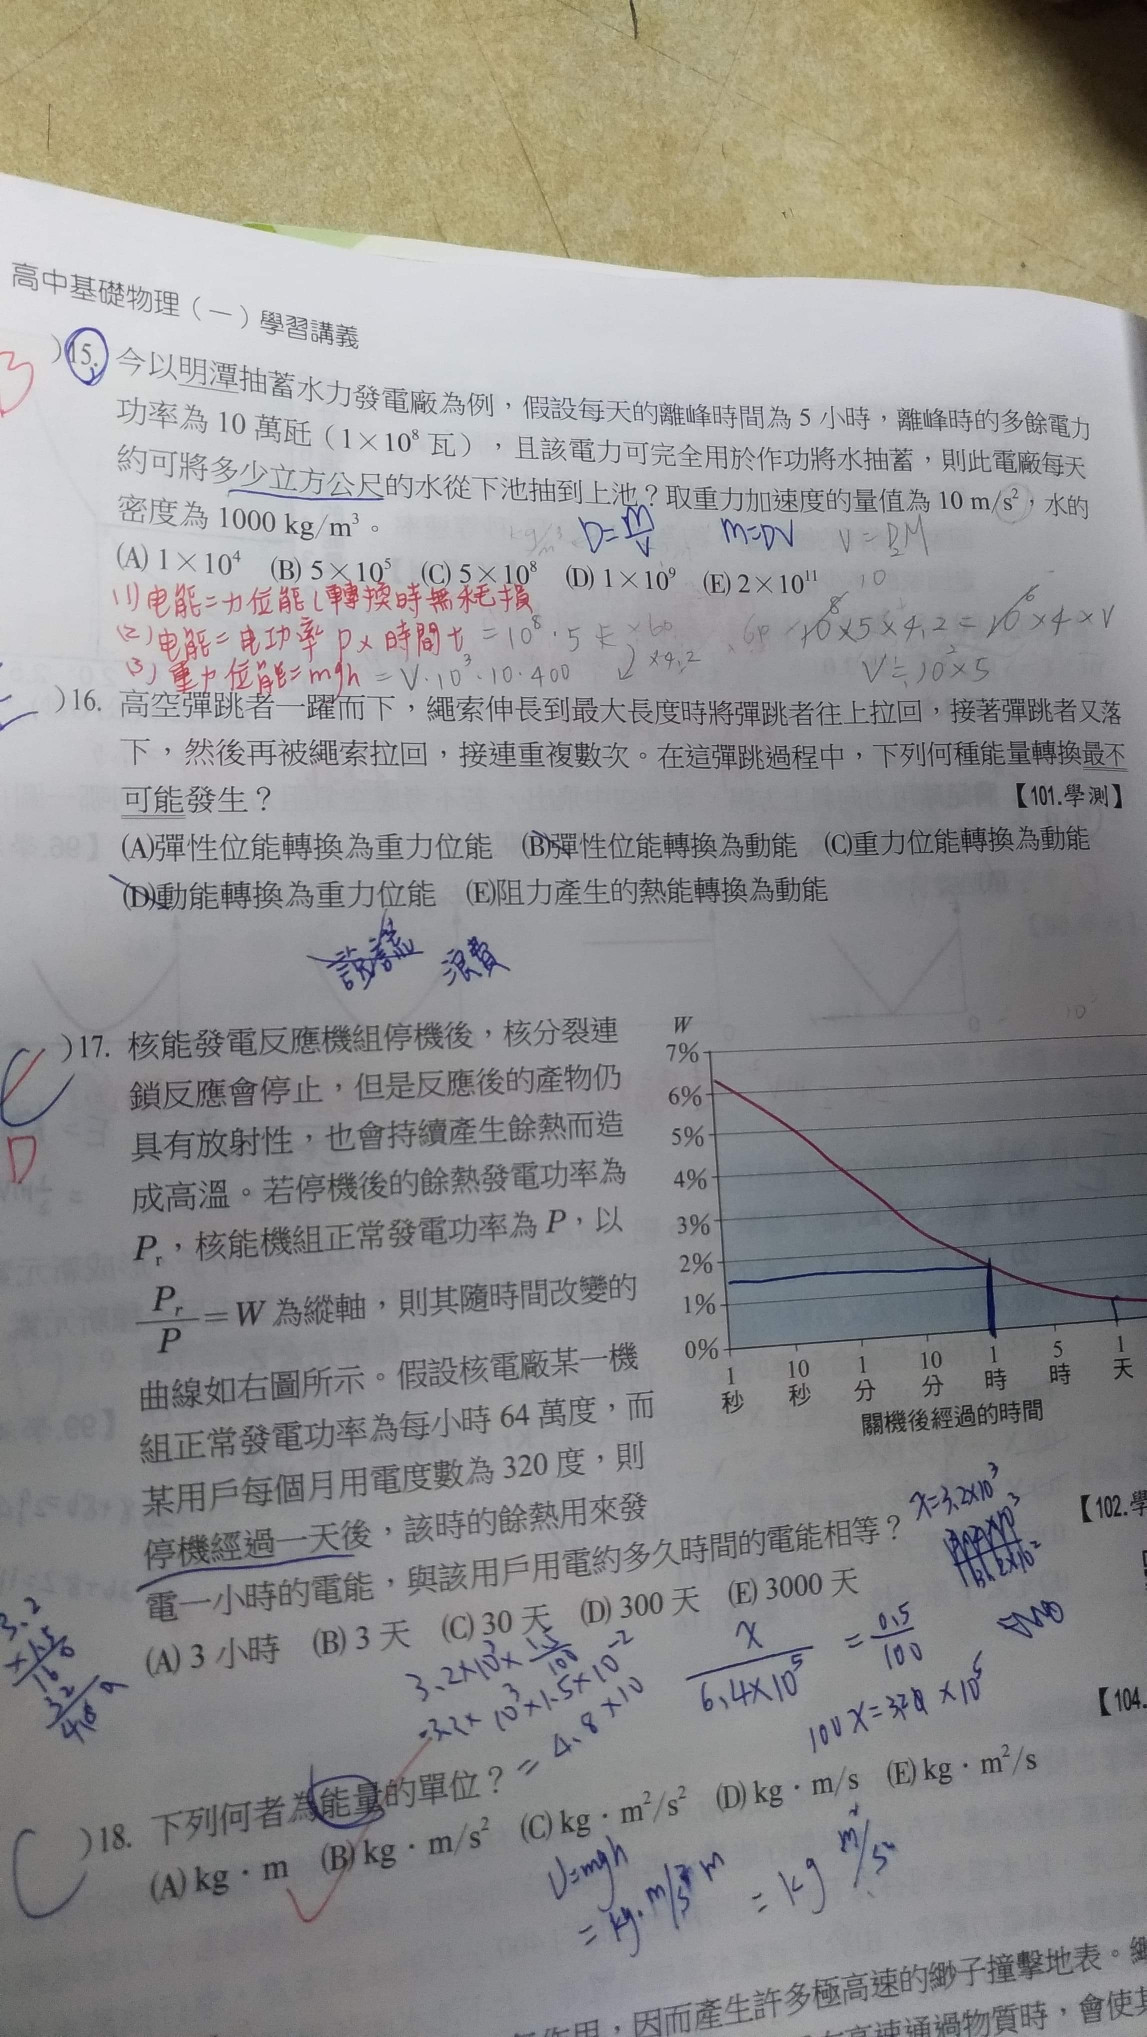 高中基礎物理（一）學習講義
B
)15. 今以明潭抽蓄水力發電廠為例，假設每天的離峰時間為 5 小時，離峰時的多餘電力
功率為 10 萬瓩（1×10⁸ 瓦），且該電力可完全用於作功將水抽蓄，則此電廠每天
約可將多少立方公尺的水從下池抽到上池？取重力加速度的量值為 10 m/s²，水的
密度為 1000 kg/m³。
D=m/V m=DV V=DM
(A) 1×10⁴ (B) 5×10⁵ (C) 5×10⁸ (D) 1×10⁹ (E) 2×10¹¹
(1) 电能=力位能(轉換時無耗損
(2) 电能=电功率 P×時間t =10⁸·5
(3) 重力位能=mgh = V·10³·10·400
×4.2
V≒10²×5
)16. 高空彈跳者一躍而下，繩索伸長到最大長度時將彈跳者往上拉回，接著彈跳者又落
下，然後再被繩索拉回，接連重複數次。在這彈跳過程中，下列何種能量轉換最不
可能發生？ 【101.學測】
(A)彈性位能轉換為重力位能 (B)彈性位能轉換為動能 (C)重力位能轉換為動能
(D)動能轉換為重力位能 (E)阻力產生的熱能轉換為動能
浪費
C
D
)17. 核能發電反應機組停機後，核分裂連
鎖反應會停止，但是反應後的產物仍
具有放射性，也會持續產生餘熱而造
成高溫。若停機後的餘熱發電功率為
Pr，核能機組正常發電功率為 P，以
Pr/P=W 為縱軸，則其隨時間改變的
曲線如右圖所示。假設核電廠某一機
組正常發電功率為每小時 64 萬度，而
某用戶每個月用電度數為 320 度，則
停機經過一天後，該時的餘熱用來發
電一小時的電能，與該用戶用電約多久時間的電能相等？
【102.學
(A) 3 小時 (B) 3 天 (C) 30 天 (D) 300 天 (E) 3000 天
W
7%
6%
5%
4%
3%
2%
1%
0%
1秒 10秒 1分 10分 1時 5時 1天
關機後經過的時間
x=3.2×10³
3.2×10³×1.5/100
=3.2×10³×1.5×10⁻²
=4.8×10
x/6.4×10⁵ = 0.5/100
【104.
C
)18. 下列何者為能量的單位？
(A) kg·m (B) kg·m/s² (C) kg·m²/s² (D) kg·m/s (E) kg·m²/s
U=mgh
=kg·m/s² m =kg m²/s²
因而產生許多極高速的緲子撞擊地表。緲
高速通過物質時，會使其